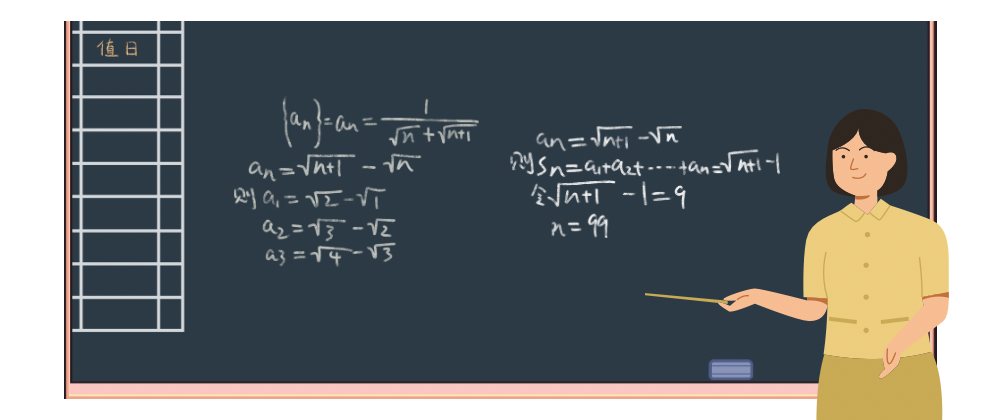 值日
{an}=an=1/(√n+√n+1)
an=√n+1-√n
则a1=√2-√1
a2=√3-√2
a3=√4-√3
an=√n+1-√n
则Sn=a1+a2+……+an=√n+1-1
令√n+1-1=9
n=99